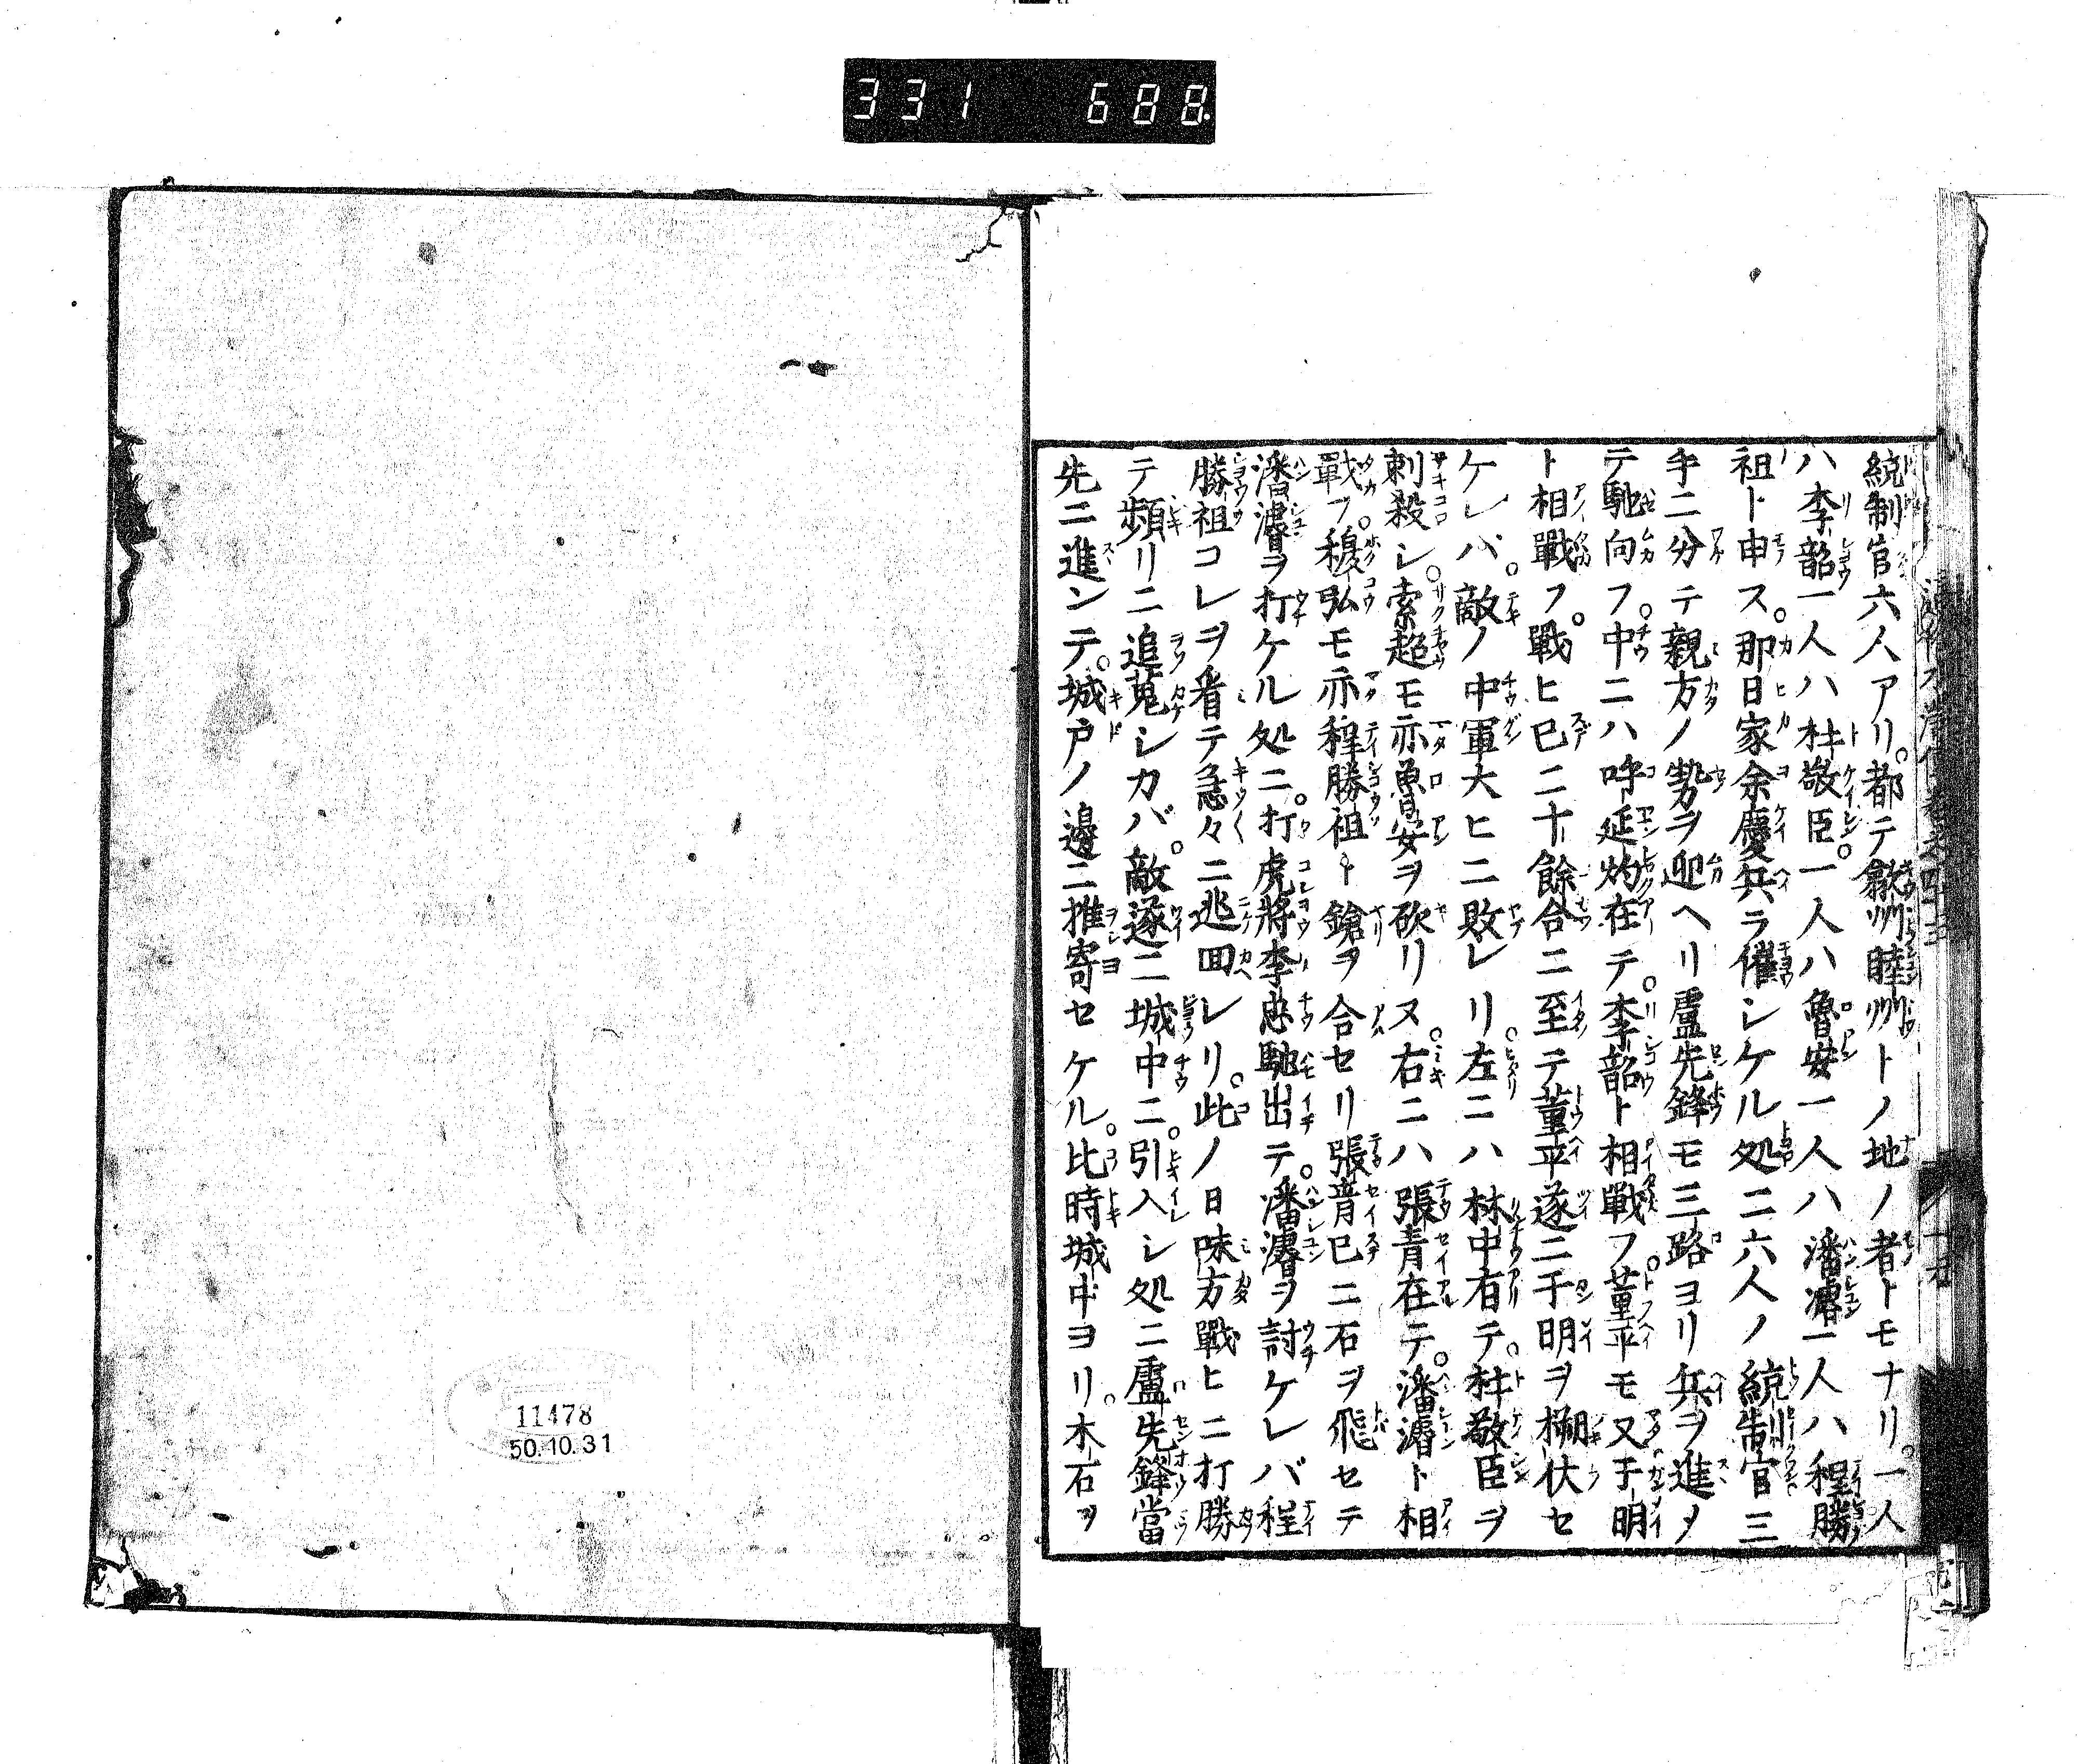 331 688
統制官六人アリ。都テ歙州睦州トノ地ノ者トモナリ。一人
ハ李韶一人ハ杜敬臣。一人ハ魯安一人ハ潘濬一人ハ程勝
祖ト申ス。那日家余慶兵ヲ催シケル処ニ六人ノ統制官三
手ニ分テ親方ノ勢ヲ迎ヘリ盧先鋒モ三路ヨリ兵ヲ進メ
テ馳向フ。中ニハ呼延灼在テ。李韶ト相戰フ。董平モ又于明
ト相戰フ。戰ヒ已ニ十餘合ニ至テ董平遂ニ于明ヲ搠伏セ
ケレバ。敵ノ中軍大ヒニ敗レリ。左ニハ林冲有テ。杜敬臣ヲ
刺殺シ。索超モ亦魯安ヲ砍リヌ。右ニハ張青在テ。潘濬ト相
戰フ。穆弘モ亦程勝祖ト鎗ヲ合セリ張青已ニ石ヲ飛セテ
潘濬ヲ打ケル処ニ。打虎將李忠馳出テ。潘濬ヲ討ケレバ程
勝祖コレヲ看テ急々ニ逃回レリ。此ノ日味方戰ヒニ打勝
テ頻リニ追蒐シカバ。敵遂ニ城中ニ。引入シ処ニ盧先鋒當
先ニ進ンテ。城戸ノ邊ニ推寄セケル。比時城中ヨリ。木石ヲ
11478
50.10.31